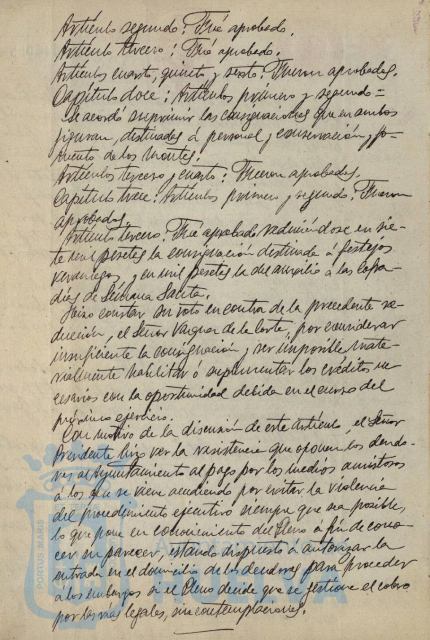 Artículo segundo: Fué aprobado.
Artículo tercero: Fué aprobado.
Artículos cuarto, quinto y sexto: Fueron aprobados.
Capítulo doce: Artículos primero y segundo =
se acordó suprimir las consignaciones que en ambos
figuran, destinadas á personal, conservación y fo-
mento de los montes.
Artículos tercero y cuarto: Fueron aprobados.
Capítulo trece: Artículos primero y segundo: Fueron
aprobados.
Artículo tercero: Fué aprobado reduciéndose en sie-
te mil pesetas la consignación destinada á festejos
veraniegos, y en mil pesetas la del auxilio á las Cofra-
días de Semana Santa.
Hizo constar su voto en contra de la precedente re-
ducción, el Señor Wagner de la Corte, por considerar
insuficiente la consignación y ser imposible mate-
rialmente habilitar ó suplementar los créditos ne-
cesarios con la oportunidad debida en el curso del
próximo ejercicio.
Con motivo de la discusión de este artículo, el Señor
Presidente hizo ver la resistencia que oponen los deudo-
res al Ayuntamiento al pago por los medios amistosos
á los que se viene acudiendo por evitar la violencia
del procedimiento ejecutivo siempre que sea posible,
lo que pone en conocimiento del Pleno á fin de cono-
cer su parecer, estando dispuesto á autorizar la
entrada en el domicilio de los deudores para proceder
á los embargos si el Pleno decide que se gestione el cobro
por las vias legales, sin contemplaciones.
PORTUS MARIS